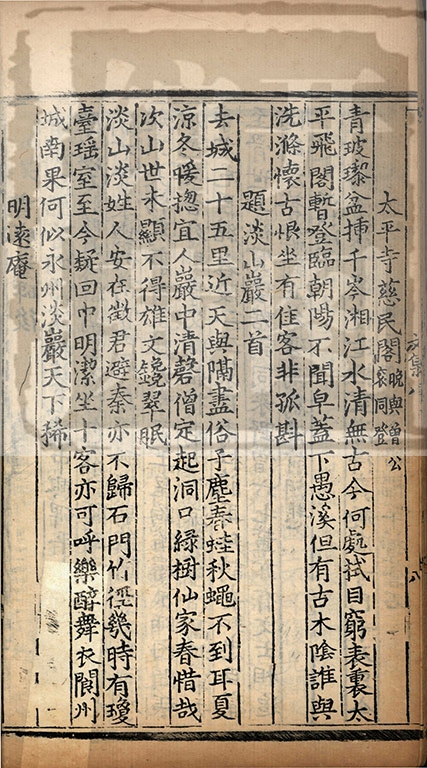 太平寺慈民閣晚與曾公衮同登
青玻瓈盆揷千岑湘江水清無古今何處拭目窮表裏太
平飛閣暫登臨朝陽不聞皁蓋下愚溪但有古木陰誰與
洗滌懷古恨坐有佳客非孤斟
題淡山巖二首
去城二十五里近天與隔盡俗子塵春蛙秋蠅不到耳夏
涼冬暖揔宜人巖中清磬僧定起洞口綠樹仙家春惜哉
次山世未顯不得雄文鑱翠珉
淡山淡姓人安在徵君避秦亦不歸石門竹徑幾時有瓊
臺瑤室至今疑回中明潔坐十客亦可呼樂醉舞衣閬州
城南果何似永州淡巖天下稀
明遠庵